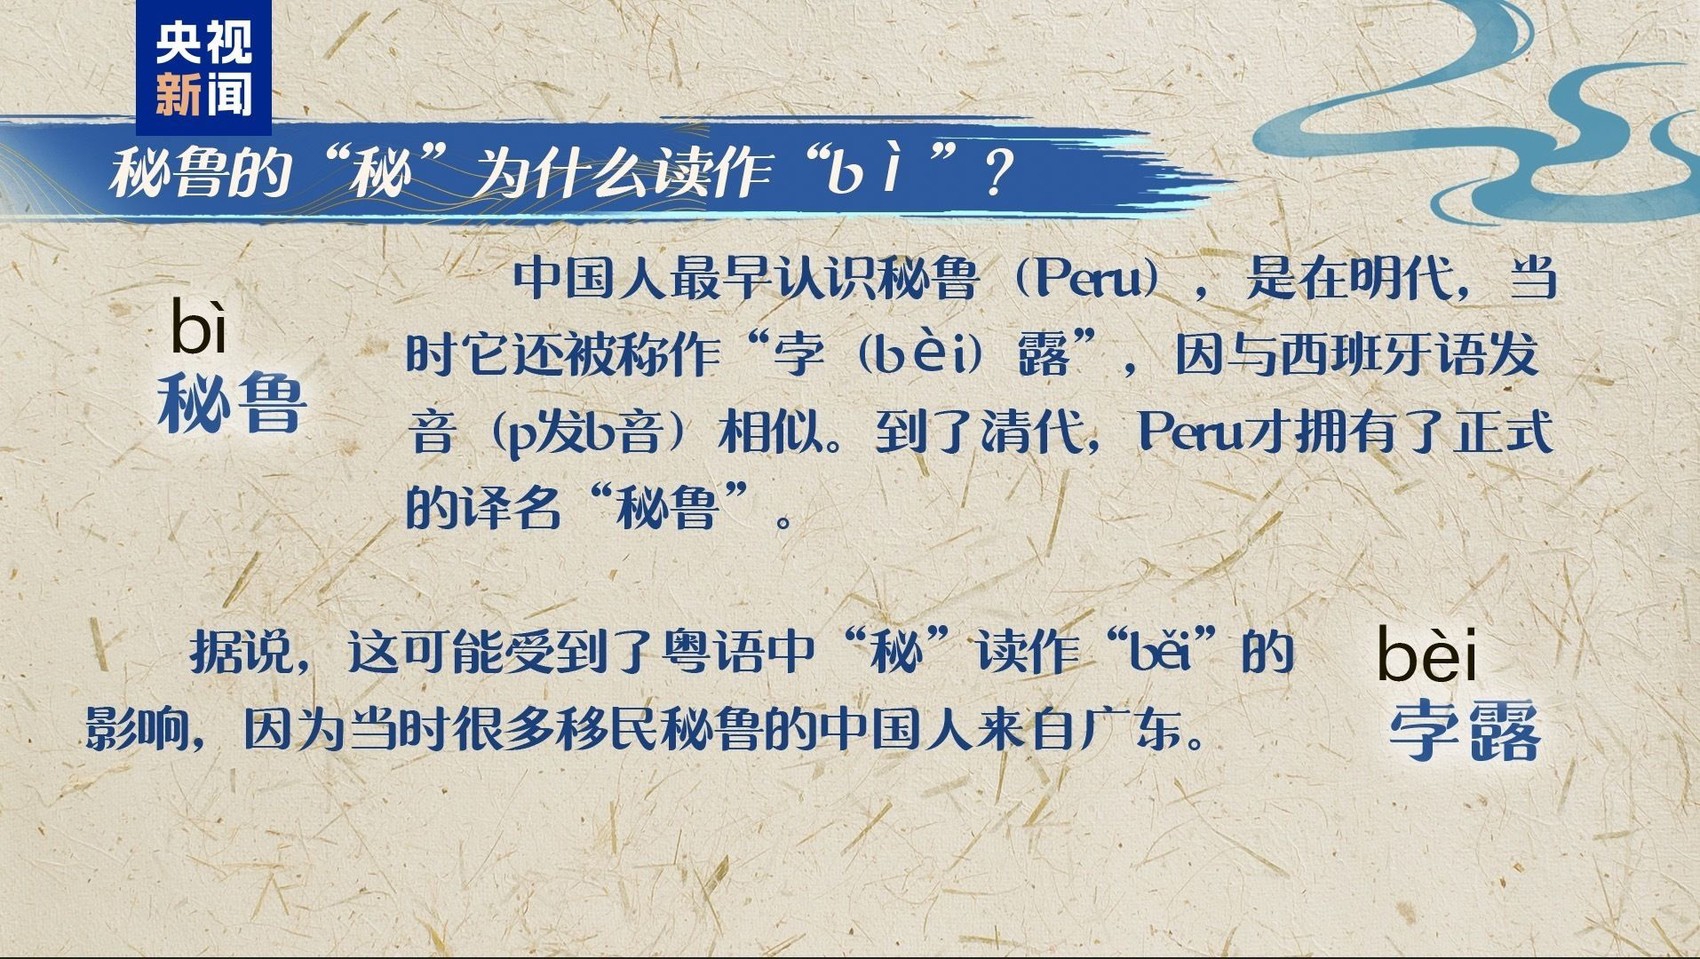 央视
新闻
秘鲁的“秘”为什么读作“bì”？
bì
秘鲁
中国人最早认识秘鲁（Peru），是在明代，当
时它还被称作“孛（bèi）露”，因与西班牙语发
音（p发b音）相似。到了清代，Peru才拥有了正式
的译名“秘鲁”。
据说，这可能受到了粤语中“秘”读作“běi”的
影响，因为当时很多移民秘鲁的中国人来自广东。
bèi
孛露